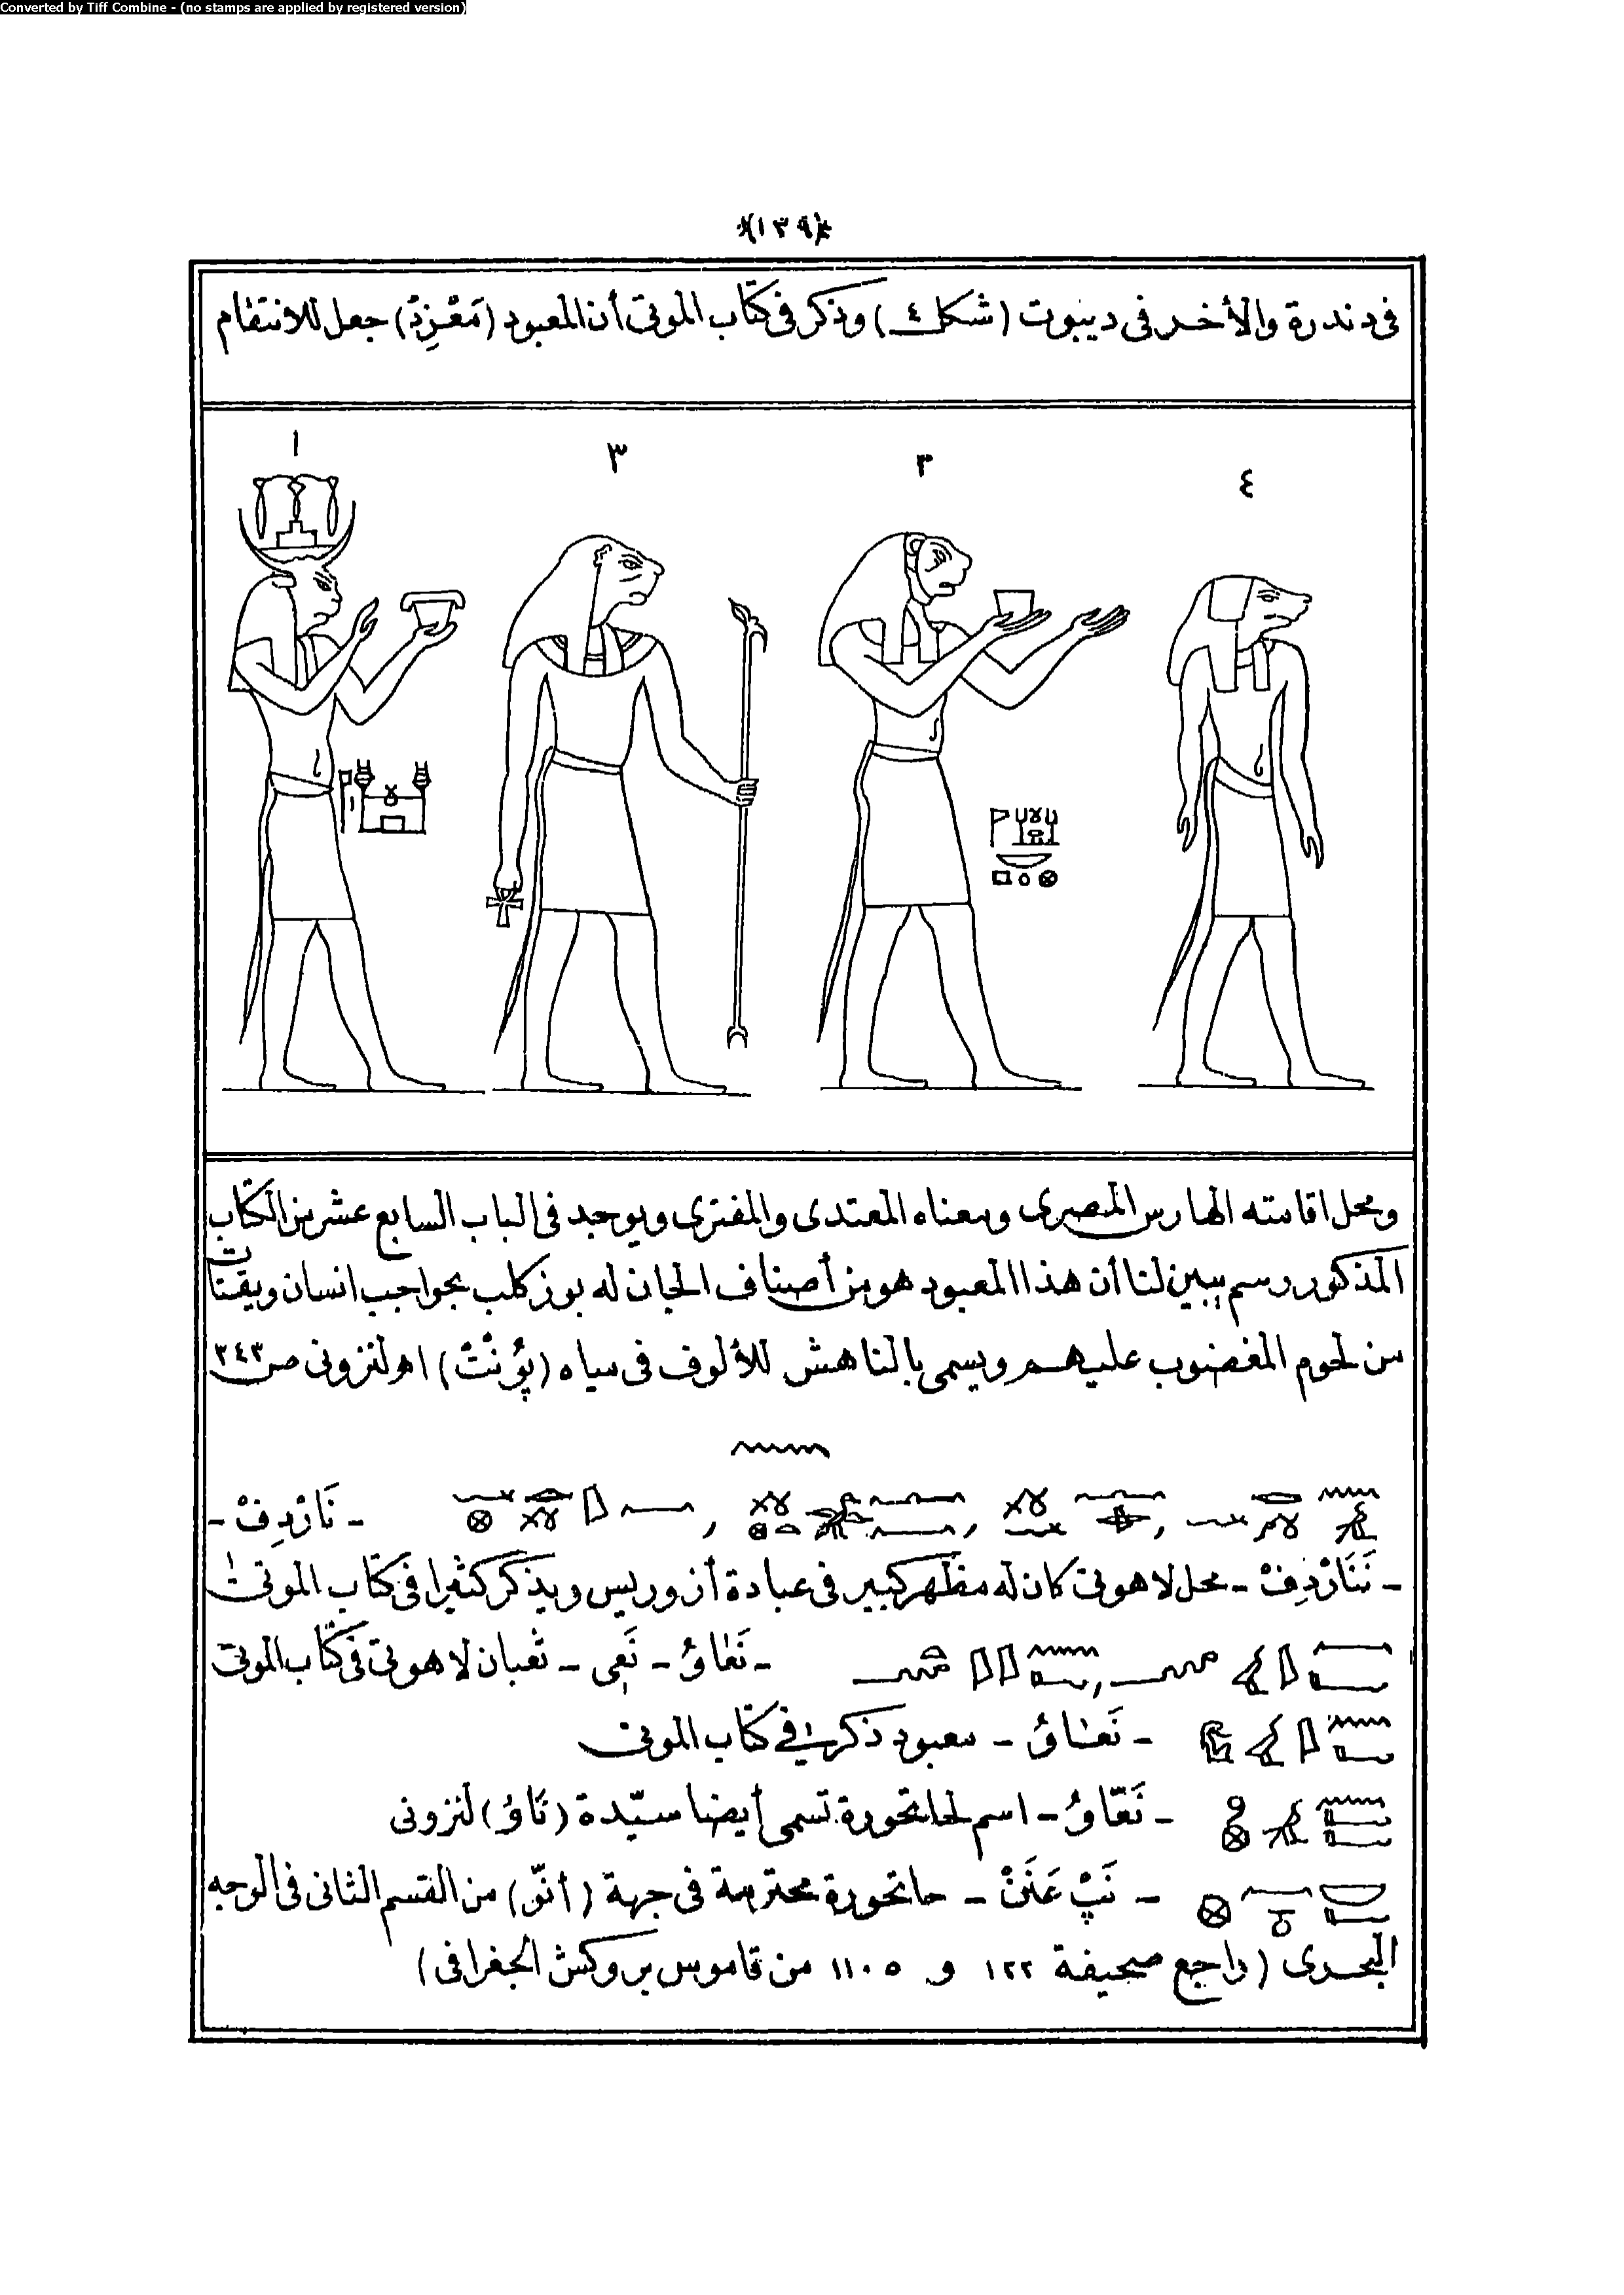 Converted by Tiff Combine - (no stamps are applied by registered version)
﴿١٣٩﴾
فى دندرة والأخر فى ديبوت (شكل ٤) وذكر فى كتاب الموتى أن المعبود (مَعْزِدْ) جعل للانتقام
١ ٣ ٣ ٤
ومحل اقامته الهارس المصرى ومعناه المعتدى والمفترى ويوجد فى الباب السابع عشر من الكتاب
المذكور رسم يبين لنا أن هذا المعبود هو من أصناف الجان له بوز كلب بحواجب انسان ويقتات
من لحوم المغضوب عليهم ويسمى بالناهش للألوف فى مياه (پُونْتْ) اه لنزونى ص ٣٤٣
- نَارْدِفْ -
- نَنَارْدِفْ - محل لاهوتى كان له مظهر كبير فى عبادة أزوريس ويذكر كثيرا فى كتاب الموتى
- نَعَاوُ - نَعِى - ثعبان لاهوتى فى كتاب الموتى
- نَعَاوُ - معبود ذكر فى كتاب الموتى
- نَعّاوُ - اسم لحاتحورة تسمى أيضا سيّدة (تَاوُ) لنزونى
- نَپْ عَنَنْ - حاتحورة محترمة فى جهة (أنوّ) من القسم الثانى فى الوجه
البحرى (راجع صحيفة ١٢٢ و ١١٠٥ من قاموس بروكش الجغرافى)